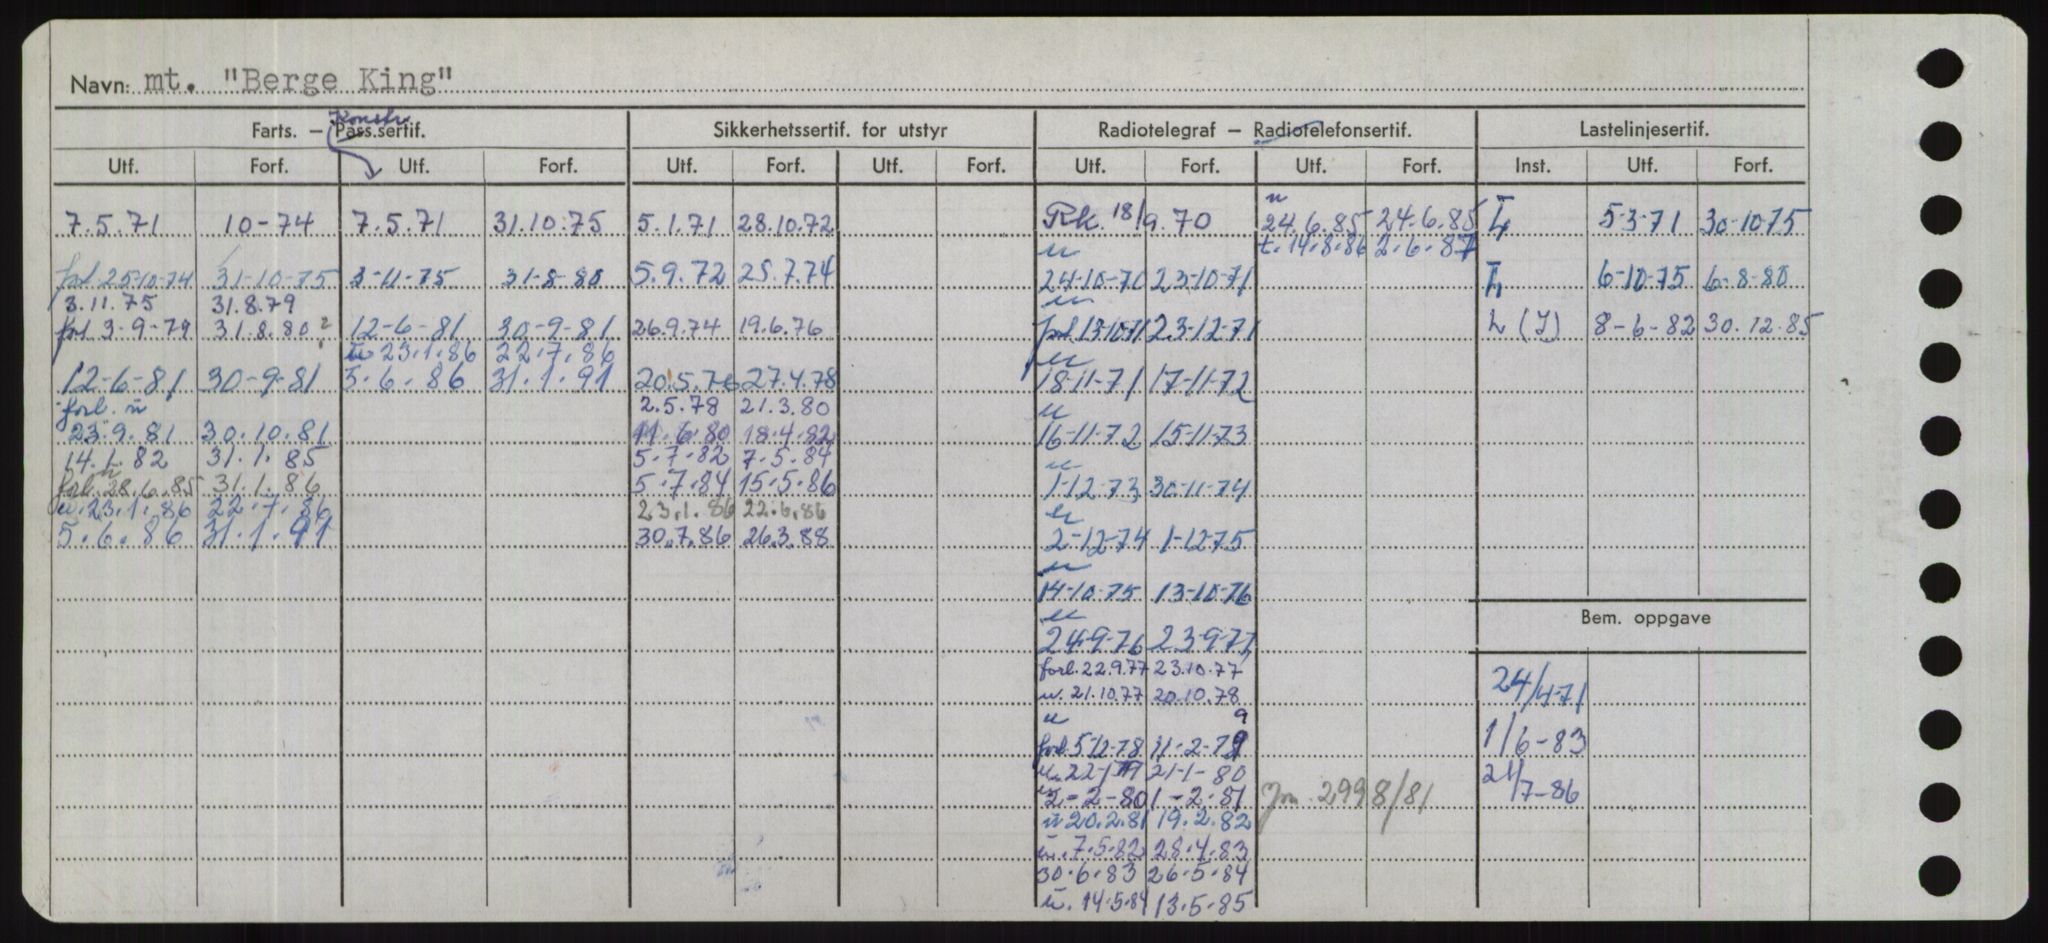 Navn: mt. "Berge King"
Konstr.
Farts. – Pass.sertif. Sikkerhetssertif. for utstyr Radiotelegraf – Radiotelefonsertif. Lastelinjesertif.
Utf. Forf. Utf. Forf. Utf. Forf. Utf. Forf. Utf. Forf. Utf. Forf. Inst. Utf. Forf.
7.5.71 10-74 7.5.71 31.10.75 5.1.71 28.10.72 Rk. 18/9.70 u 24.6.85 24.6.85 Ł 5-3-71 30-10-75
u t. 14.8.86 2.6.87
forl. 25-10-74 31-10-75 3-11-75 31-8-80 5.9.72 25.7.74 24-10-70 23-10-71 Ł 6-10-75 6-8-80
3.11.75 31.8.79 u
forl 3-9-79 31.8.80? 12-6-81 30-9-81 26.9.74 19.6.76 forl. 13-10-71 23-12-71 L (I) 8-6-82 30.12.85
u 23.1.86 22.7.86 u
12-6-81 30-9-81 5.6.86 31.1.91 20.5.76 27.4.78 18-11-71 17-11-72
forl. u 2.5.78 21.3.80 u
23.9.81 30.10.81 11.6.80 18.4.82 16-11-72 15-11-73
14.1.82 31.1.85 5.7.82 7.5.84 u
forl. 28.6.85 31.1.86 5.7.84 15.5.86 1-12-73 30-11-74
u. 23.1.86 22.7.86 23.1.86 22.6.86 u
5.6.86 31.1.91 30.7.86 26.3.88 2-12-74 1-12-75
u
14-10-75 13-10-76
u Bem. oppgave
24-9-76 23-9-77
forl. 22.9.77 23.10.77
u. 21.10.77 20.10.78 24/4-71
u 9
forl. 5-12-78 11-2-79 1/6-83
u. 22-1-79 21-1-80 21/7-86
u 2-2-80 1-2-81 Jm. 2998/81
u 20.2.81 19.2.82
u. 7.5.82 28.4.83
30.6.83 26.5.84
u. 14.5.84 13.5.85